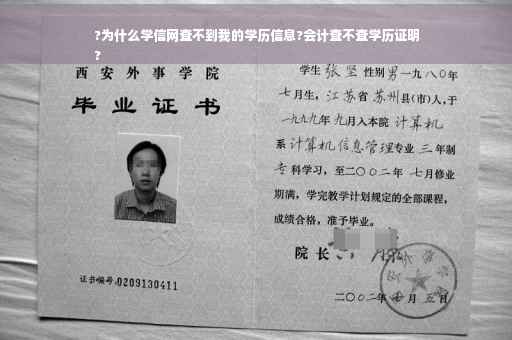 ?为什么学信网查不到我的学历信息?会计查不查学历证明
?
西安外事学院
毕业证书
证书编号:0209130411
学生张坚性别男一九八〇年
七月生,江苏省苏州县(市)人,于
一九九九年九月入本院计算机
系计算机信息管理专业三年制
专科学习,至二〇〇二年七月修业
期满,学完教学计划规定的全部课程,
成绩合格,准予毕业。
院长
二〇〇二年 月五日